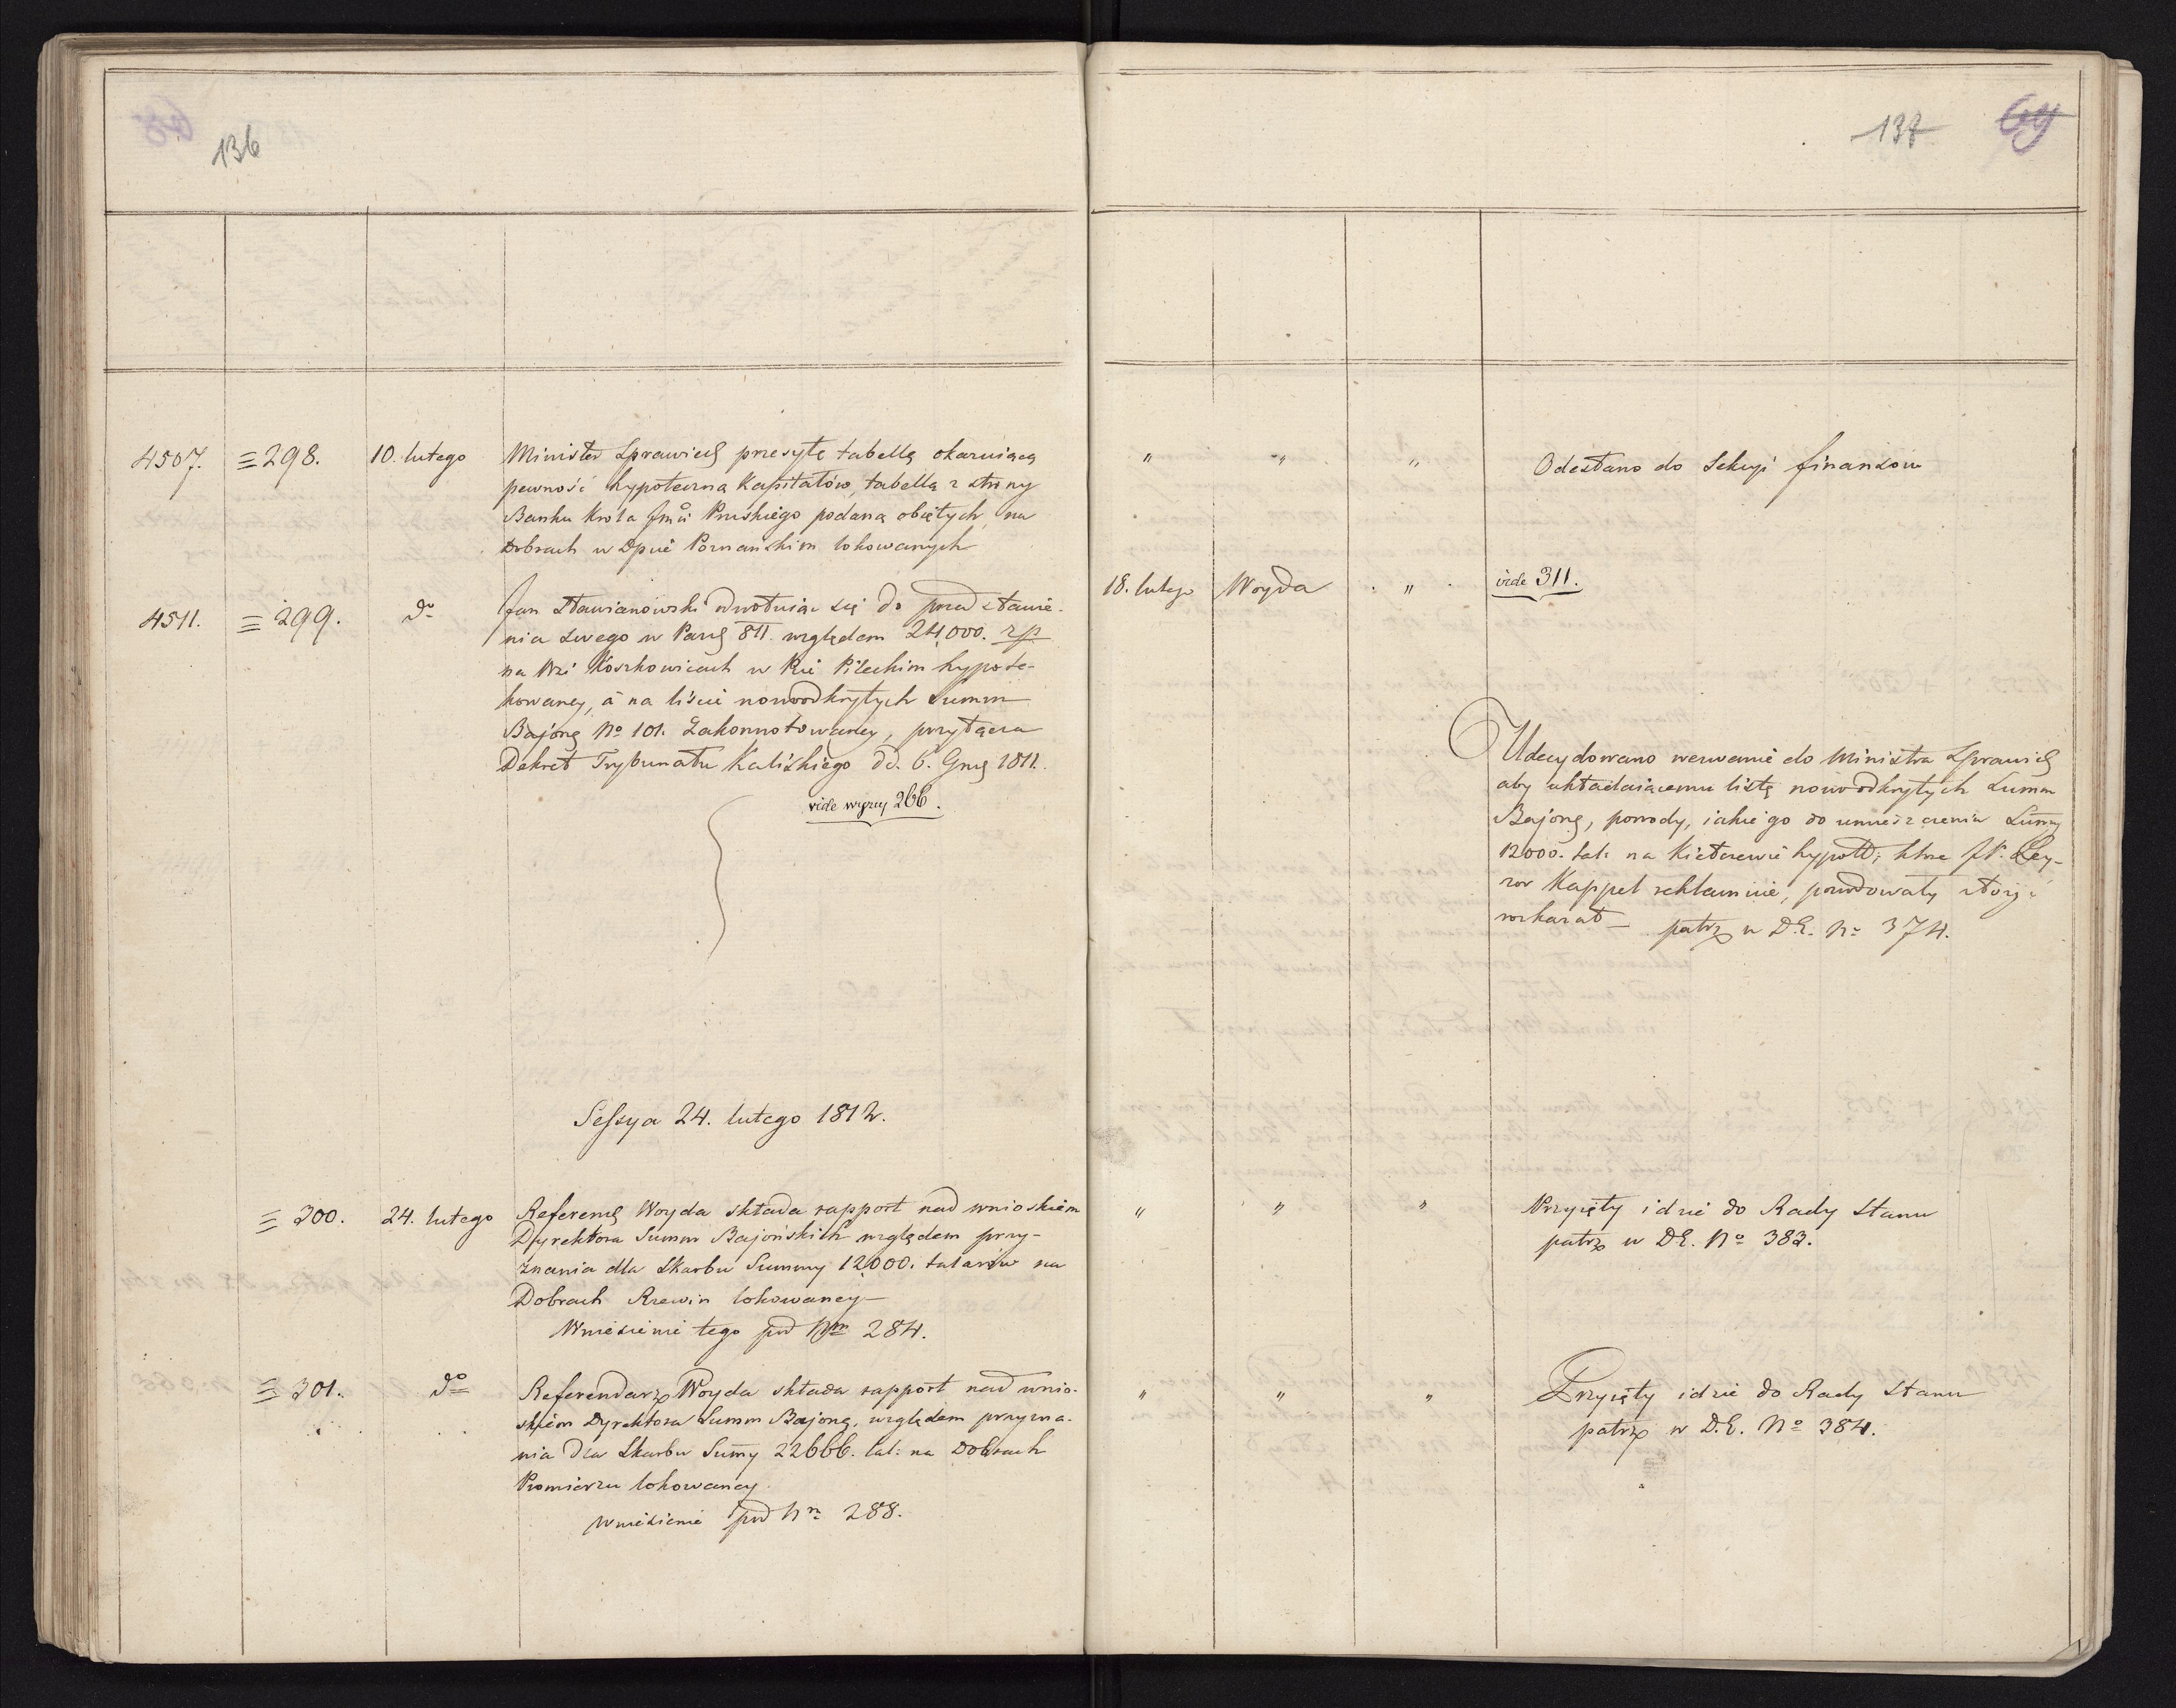 136
137 69
4507. = 298. 10. lutego Minister Sprawied przesyła tabellę okazuiącą
pewność hypoteczną Kapitałów, tabellą z strony
Banku Krola Jmći Pruskiego podaną obiętych, na
Dobrach w Dpcie Poznańskim lokowanych
" " " Odesłano do Sekcyi finansów
4511. = 299. do Jan Stawianowski odwołuiąc się do przedstawie-
nia swego w Paźd 811. względem 24,000. zp
na Wsi Koszkowicach w Pcie Pileckim hypote-
kowaney, á na liście nowoodkrytych Summ
Bajong No 101. zakonnotowaney, przyłącza
Dekret Trybunału Kaliskiego dd. 6. Grud 1811.
vide wyzey 266.
18. lutego Woyda " vide 311.
Udecydowano wezwanie do Ministra Sprawied
aby układaiącemu listę nowoodkrytych Summ
Bajong, powody, iakie go do umieszczenia Sumy
12000. tal: na Kiełczewie hypott; które JP.
Kappel reklamuie, powodowały złożyć
rozkazał — patrz w D.E. No 374.
Sessya 24. lutego 1812.
= 300. 24. lutego Referend Woyda składa rapport nad wnioskiem
Dyrektora Summ Bajońskich względem przy-
znania dla Skarbu Summy 12,000. talarów na
Dobrach Rzewin lokowaney —
Wniesienie tego pod Nrm 284.
" " " Przyięty idzie do Rady Stanu
patrz w D.E. No 383.
= 301. do Referendarz Woyda składa rapport nad wnio-
skiem Dyrektora Summ Bajong, względem przyzna-
nia dla Skarbu Sumy 22666. tal: na Dobrach
Promierzu lokowaney.
Wniesienie pod Nrm 288.
" " " Przyięty idzie do Rady Stanu
patrz w D.E. No 384.